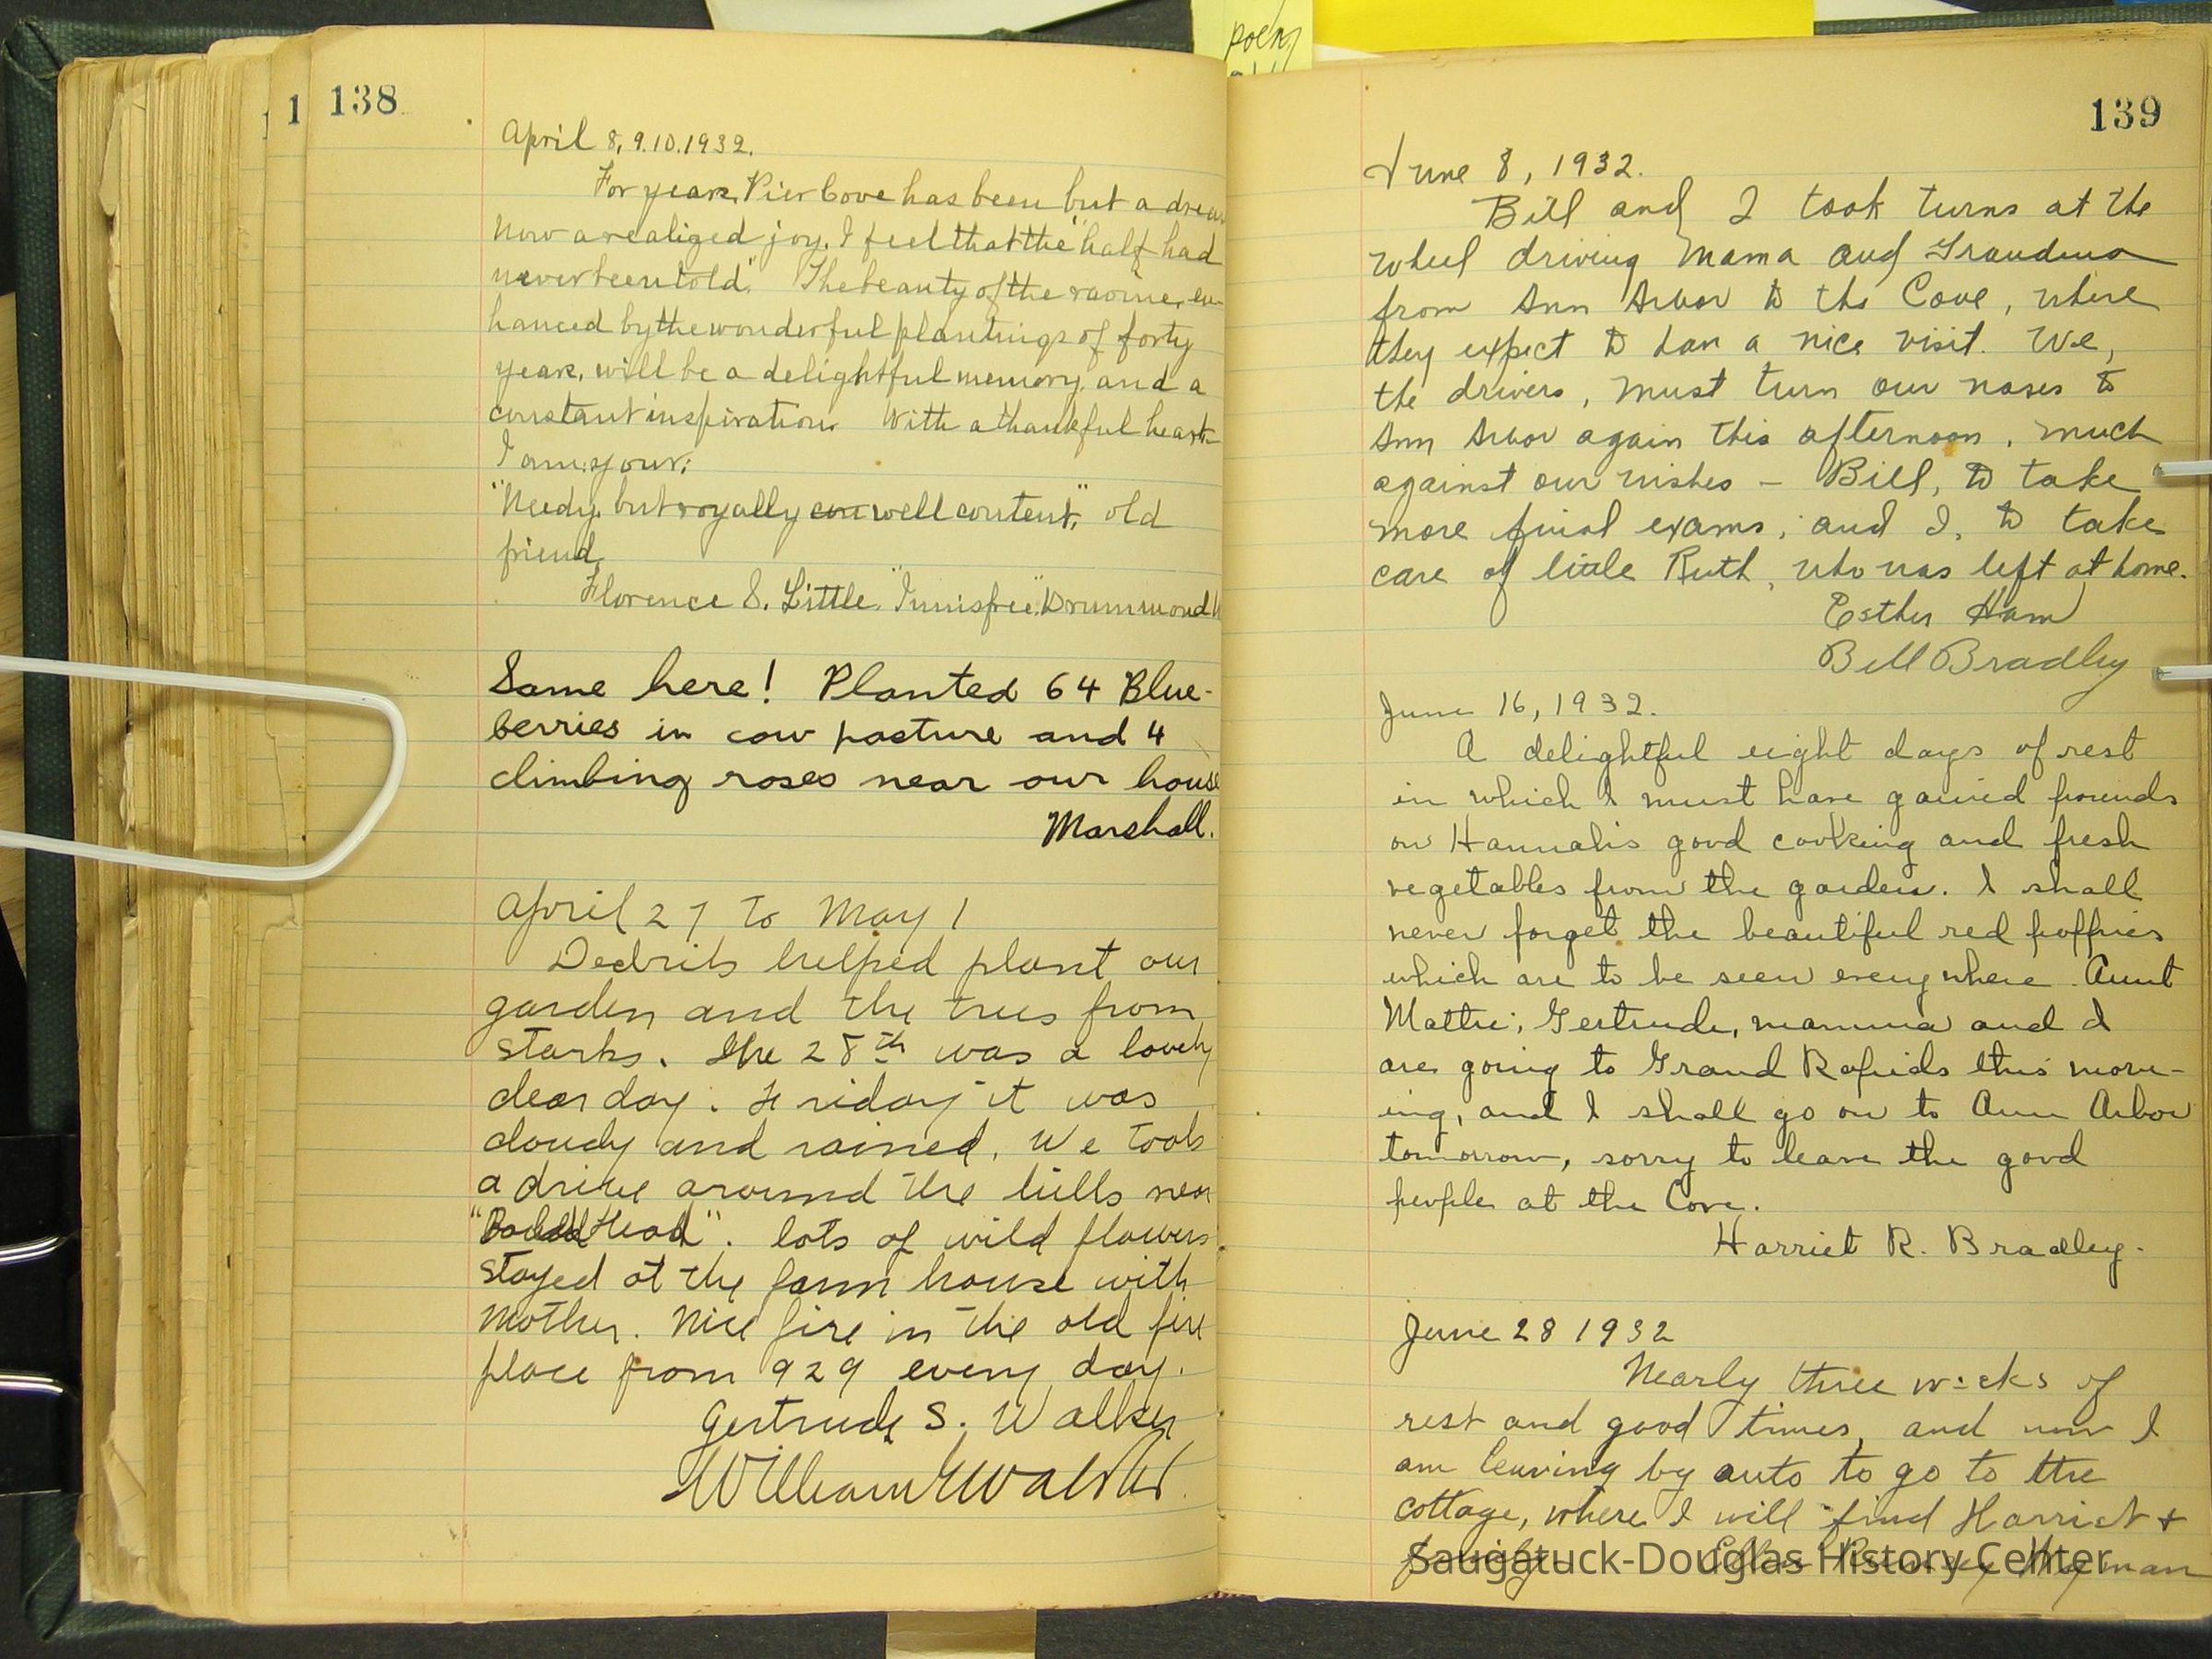 poem
1 138
April 8, 9.10.1932.
For years, Pier Cove has been but a dream
now a realized joy. I feel that the "half had
never been told." The beauty of the ravine, en-
hanced by the wonderful plantings of forty
years, will be a delightful memory, and a
constant inspiration. With a thankful heart
I am: your:
"Needy, but royally con well content," old
friend
Florence S. Little. "Innisfree", Drummond
Same here! Planted 64 Blue-
berries in cow pasture and 4
climbing roses near our house
Marshall.
April 27 to May 1
helped plant our
garden and the trees from
Starks. The 28th was a lovely
clear day. Friday it was
cloudy and rained. We took
a drive around the hills near
"Bald Head". lots of wild flowers
stayed at the farm house with
Mother. Nice fire in the old fire
place from 929 every day.
Gertrude S. Walker
William Walker
139
June 8, 1932.
Bill and I took turns at the
wheel driving Mama and Grandma
from Ann Arbor to the Cove, where
they expect to have a nice visit. We,
the drivers, must turn our noses to
Ann Arbor again this afternoon, much
against our wishes - Bill, to take
more final exams, and I, to take
care of little Ruth, who was left at home.
Esther Ham
Bill Bradley
June 16, 1932.
A delightful eight days of rest
in which I must have gained pounds
on Hannah's good cooking and fresh
vegetables from the garden. I shall
never forget the beautiful red poppies
which are to be seen everywhere. Aunt
Mattie, Gertrude, mamma and I
are going to Grand Rapids this morn-
ing, and I shall go on to Ann Arbor
tomorrow, sorry to leave the good
people at the Cove.
Harriet R. Bradley.
June 28 1932
Nearly three weeks of
rest and good times, and now I
am leaving by auto to go to the
cottage, where I will find Harriet +
family.
Saugatuck-Douglas History Center